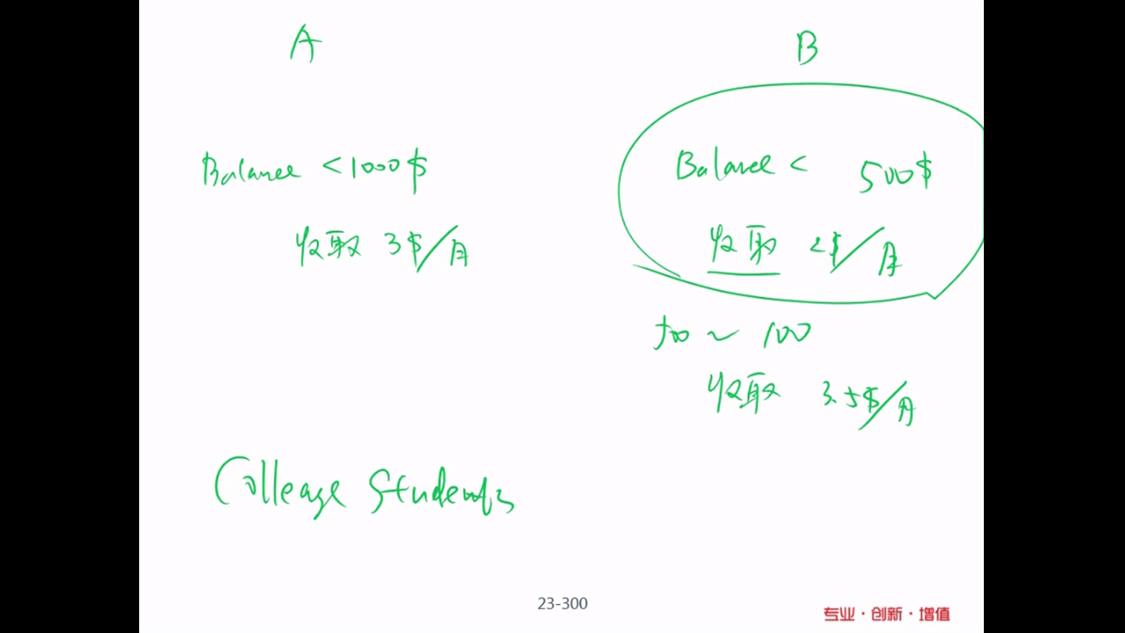 A
B
Balance <1000$
收取 3$/月
Balance < 500$
收取 2$/月
~ 100
收取 3.5$/月
Colleage Students
23-300
专业·创新·增值